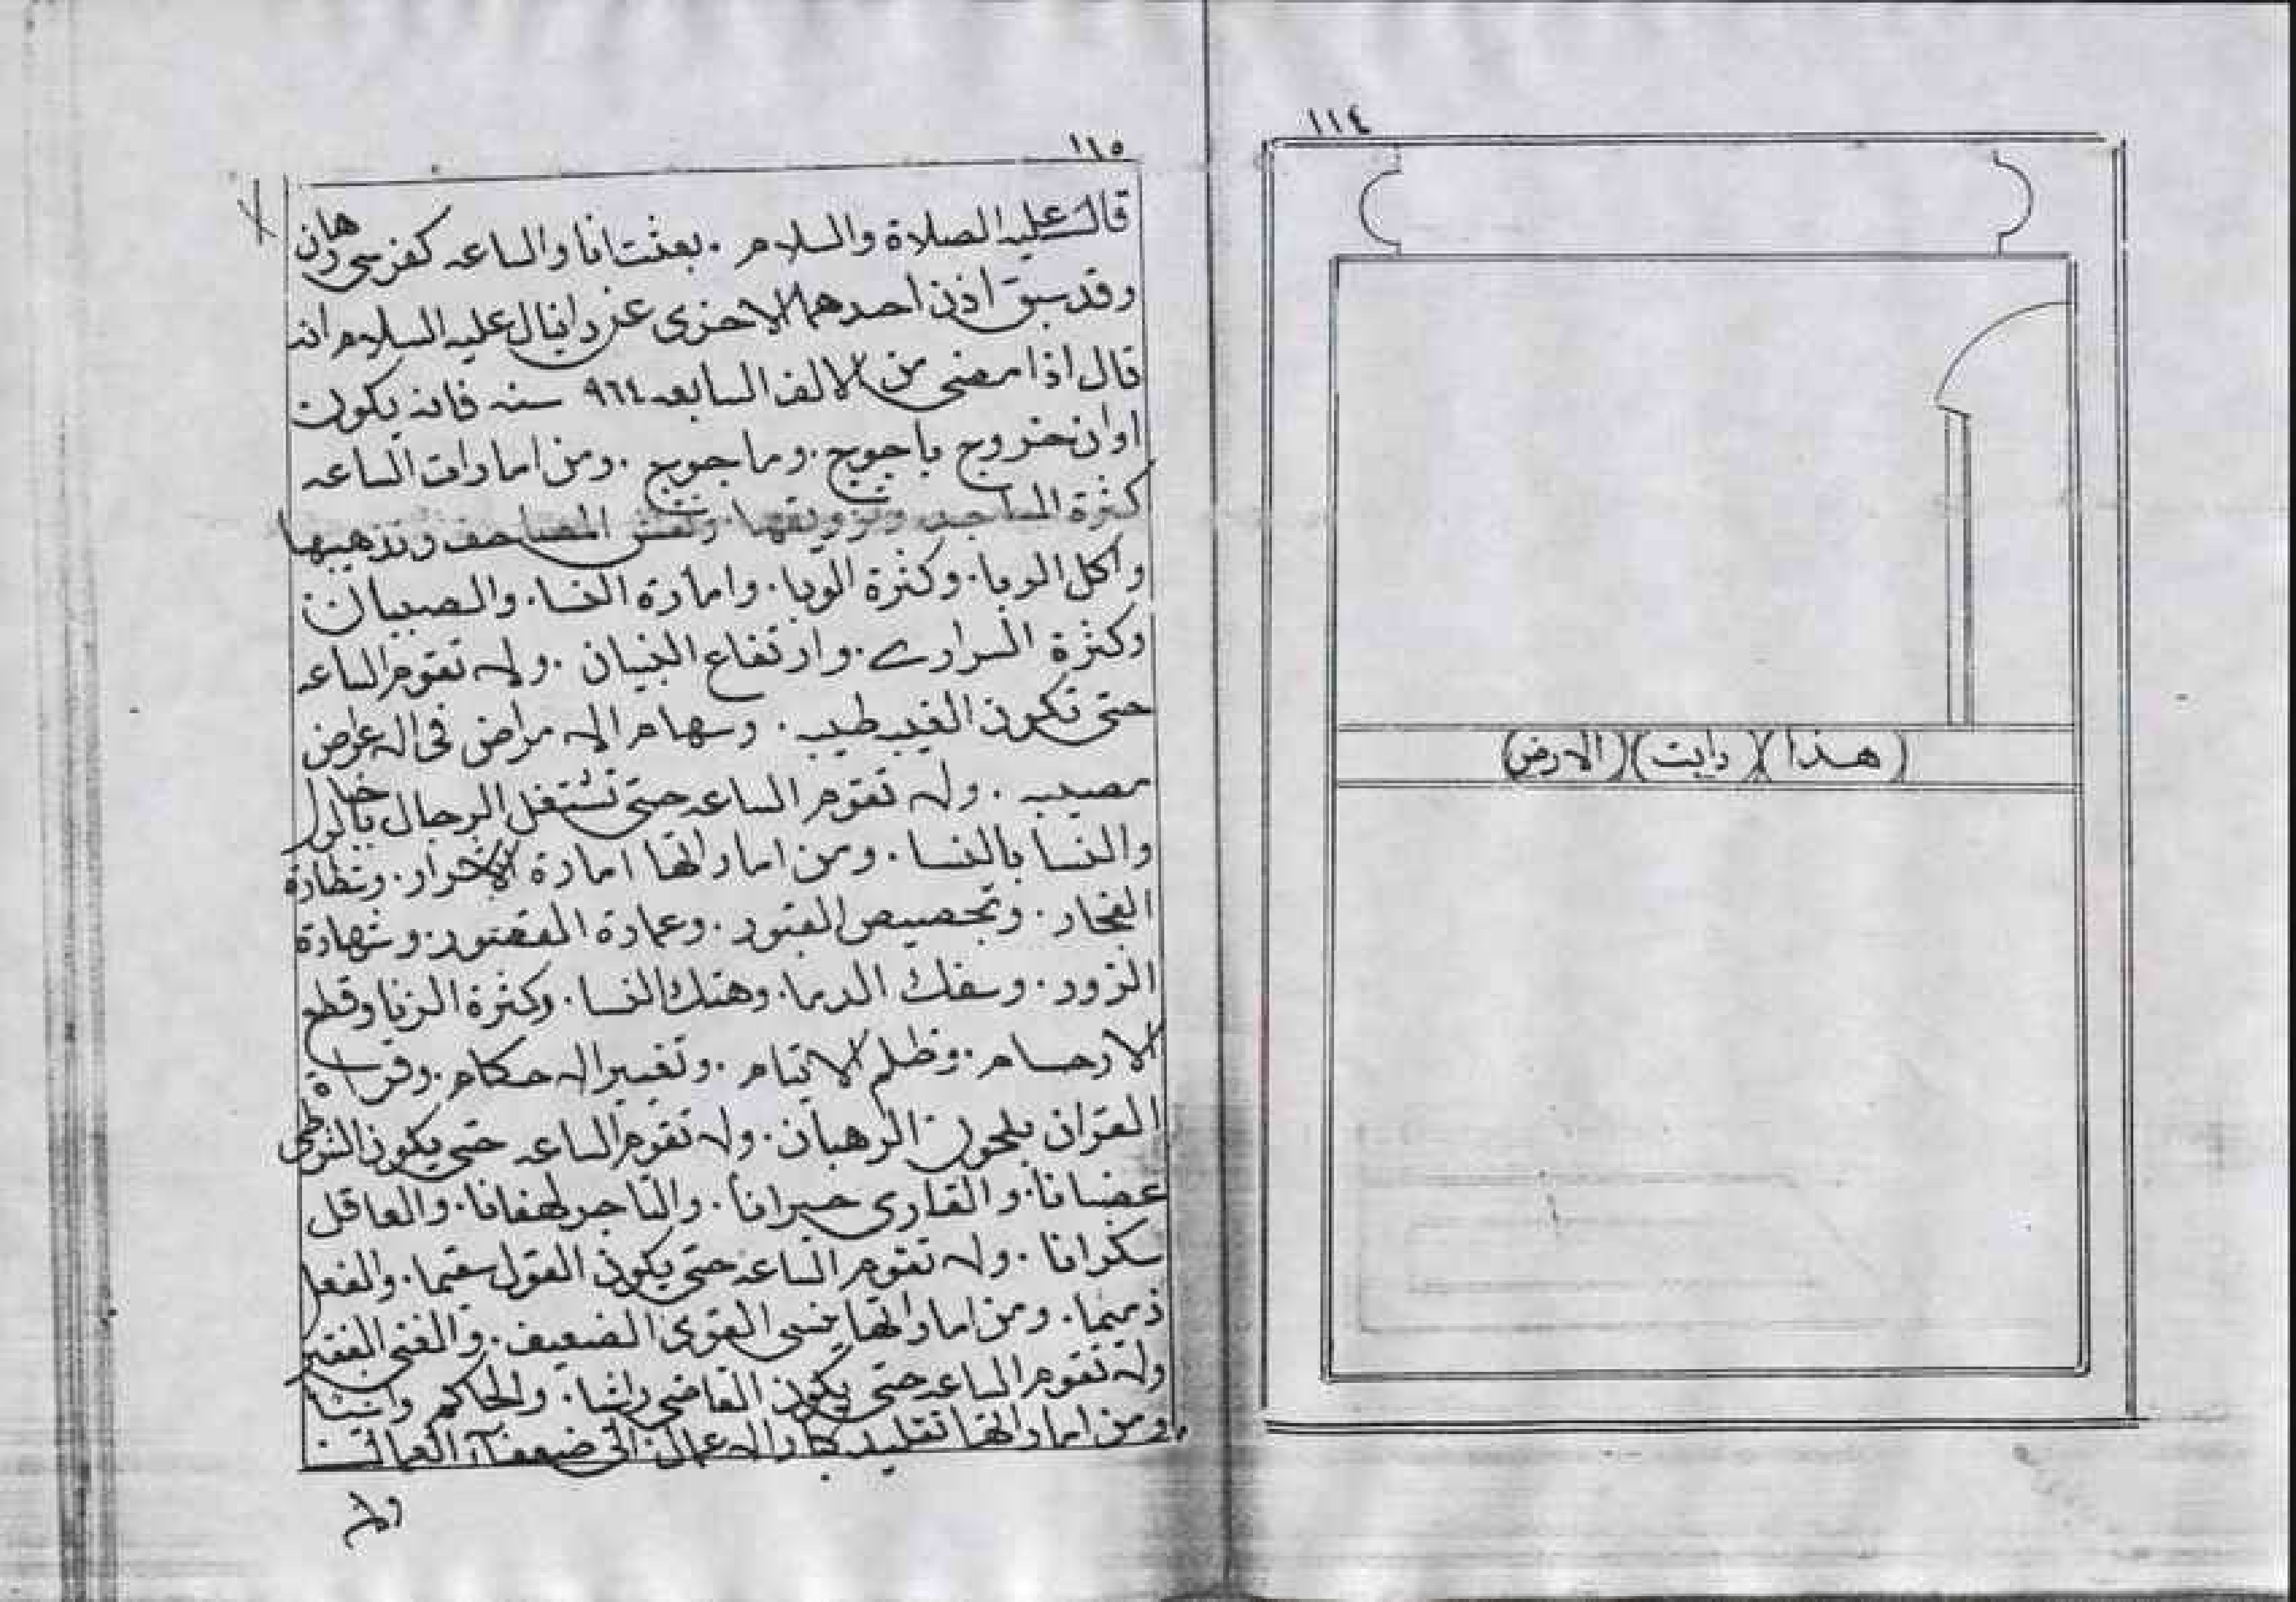 ١١٤
(هذا)(رايت)(الارض)
١١٥
قال عليه الصلاة والسلام . بعثت انا والساعه كفرسى رهان
وقد سبق اذن احدهما الاخرى عن دانيال عليه السلام انه
قال اذا مضى من الالف السابعه ٩٦٤ سنه فانه يكون
اوان خروج ياجوج . وماجوج . ومن امارات الساعه
كثرة المساجد وتزويقها . ونقش المصاحف وتذهيبها
واكل الربا . وكثرة الوبا . وامارة النسا . والصبيان
وكثرة السرارى . وارتفاع البنيان . ولا تقوم الساعه
حتى تكون الغيبه طيبه . وسهام الامراض فى الاعراض
مصيبه . ولا تقوم الساعه حتى تشتغل الرجال بالرجال
والنسا بالنسا . ومن اماراتها امارة الاشرار . ونظارة
الفجار . وتجصيص القبور . وعمارة القصور . وشهادة
الزور . وسفك الدما . وهتك النسا . وكثرة الزنا وقطع
الارحام . وظلم الايتام . وتغيير الاحكام . وقراة
القران بلحون الرهبان . ولا تقوم الساعه حتى يكون
غضبانا . والقارى حيرانا . والتاجر لهفانا . والعاقل
سكرانا . ولا تقوم الساعه حتى يكون القول سقيما . والفعل
ذميما . ومن اماراتها ينسى القوى الضعيف . والغنى الفقير
ولا تقوم الساعه حتى يكون القاضى راشيا . والحاكم
ومن اماراتها تقليد كبار الاعمال الى ضعفآء العمال
ولا